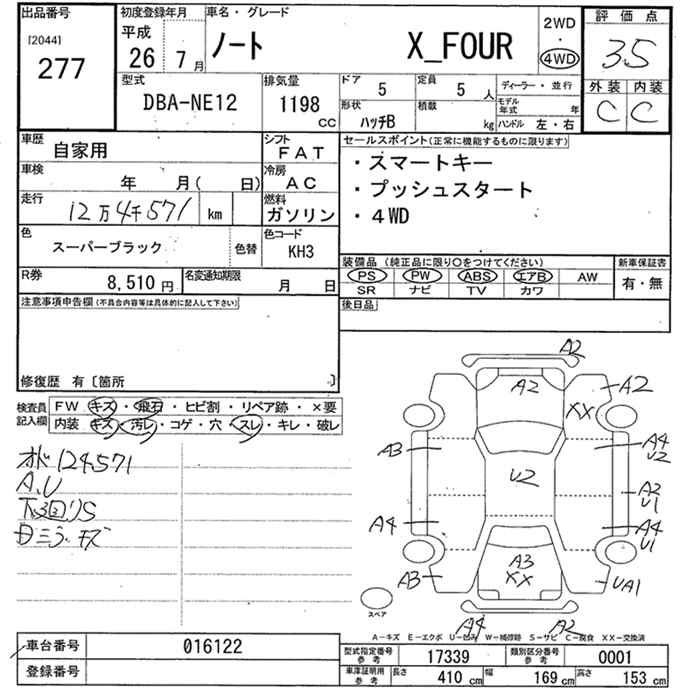 出品番号
[2044]
277
初度登録年月
平成
26 7月
車名・グレード
ノート X_FOUR
2WD
・
4WD
評価点
3.5
外装 内装
C C
型式
DBA-NE12
排気量
1198
CC
ドア
5
定員
5 人
形状
ハッチB
積載
kg
ディーラー・並行
モデル年式 年
ハンドル 左・右
車歴
自家用
シフト
FAT
車検
年 月( 日)
冷房
AC
走行
12万4千571 km
燃料
ガソリン
色
スーパーブラック
色替
色コード
KH3
R券
8,510円
名変通知期限
月 日
セールスポイント(正常に機能するものに限ります)
・スマートキー
・プッシュスタート
・4WD
装備品(純正品に限り○をつけてください)
PS PW ABS エアB AW
SR ナビ TV カワ
新車保証書
有・無
後日品
注意事項申告欄(不具合内容等は具体的に記入して下さい)
修復歴 有〔箇所 〕
検査員
記入欄
FW キズ・飛石・ヒビ割・リペア跡・×要
内装 キズ・汚レ・コゲ・穴・スレ・キレ・破レ
オド124,571
A,U
下回りS
目ミラーキズ
A2
A2
A2
XX
A3
A4
U2
U2
A2
U1
A4
A4
U1
A3
A3
XX
UA1
A4
A2
スペア
A-キズ E-エクボ U-凹ミ W-補修跡 S-サビ C-腐食 XX-交換済
車台番号
016122
登録番号
型式指定番号
参考
17339
類別区分番号
参考
0001
車庫証明用
参考
長さ
410 cm
幅
169 cm
高さ
153 cm